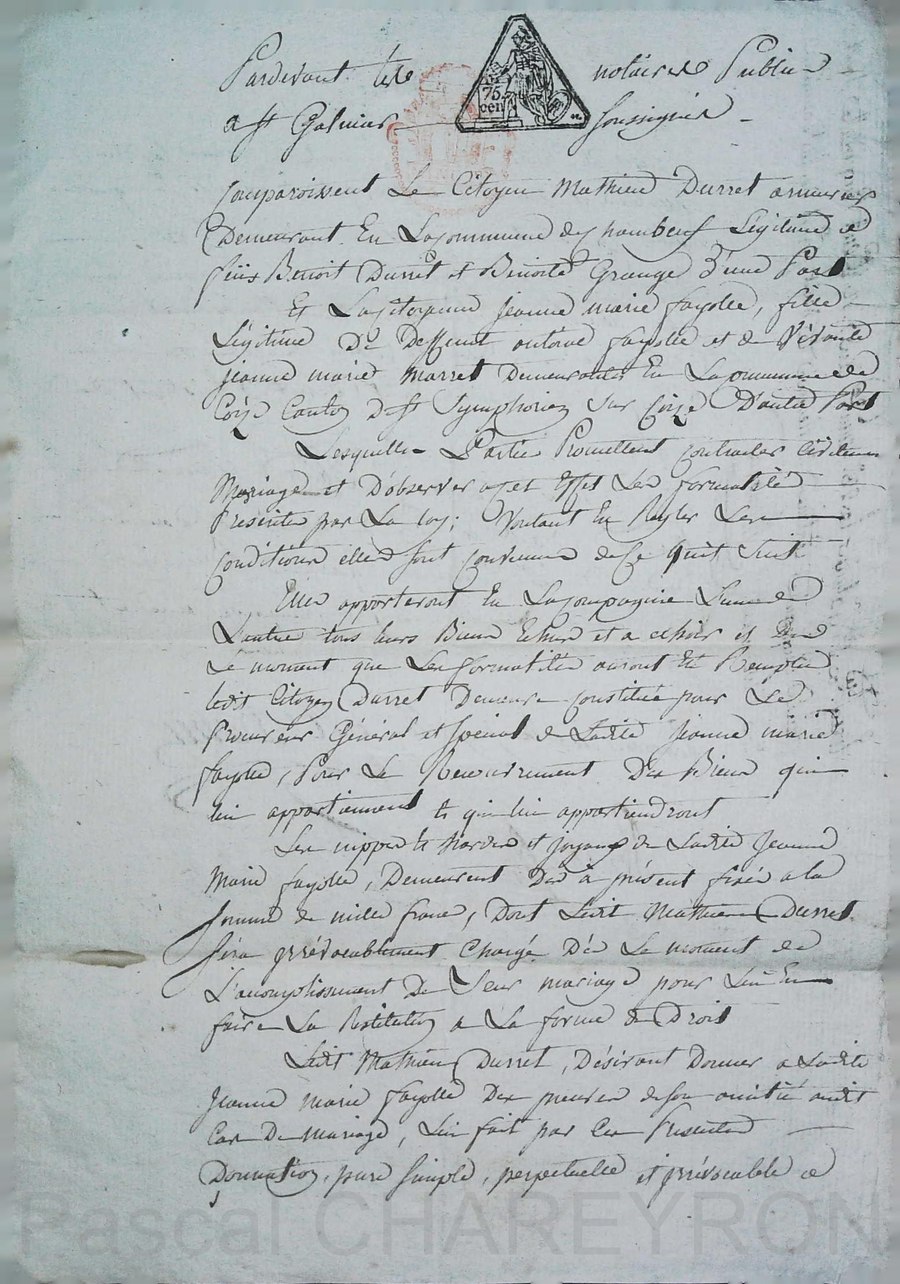 Pardevant les notaires Publics
a st Galmier soussignés
75
cen
Comparoissent Le Citoyen Mathieu Durret armurier
Demeurant En La commune de Chambeuf Légitime a
feüx Benoit Durret et Benoite Grange d'une Part
Et La Citoyenne jeanne marie fayolle, fille
Légitime De Deffunt antoine fayolle et de
jeanne marie Marret Demeurante En La commune de
Coize Canton De st Symphorien sur Coize D'autre Part
Lesquelles Parties Promettent contracter Civilement
Mariage et D'observer a cet Effet Les formalités
Présentés par La loy; Voulant En Regler Les
Conditions elles sont convenues de Ce qui Suit
Elles apporteront En La Compagnie L'une de
L'autre tous leurs Biens Echus et a echoir et des
Le moment que Les formalités auront Eté Remplies
ledit Citoyen Durret Demeure Constitué pour Le
Procureur Général et spécial de Ladite Jeanne marie
fayolle, Pour Le Recouvrement Des Biens qui
lui appartiennent et qui lui appartiendront
Les nippes hardes et joyaux de Ladite Jeanne
Marie fayolle, Demeurent Dès à présent fixés a la
somme de mille francs, Dont Ledit Mathieu Durret
sera irrévocablement Chargé Dès Le moment de
L'accomplissement De Leur mariage pour Lui En
faire La Restitution a La forme de Droit
Ledit Mathieu Durret, Désirant Donner a Ladite
Jeanne marie fayolle Des preuves de son amitié audit
Cas De mariage, Lui fait par Les Présentes
Donnation, pure simple, perpetuelle et irrévocable a
Pascal CHAREYRON